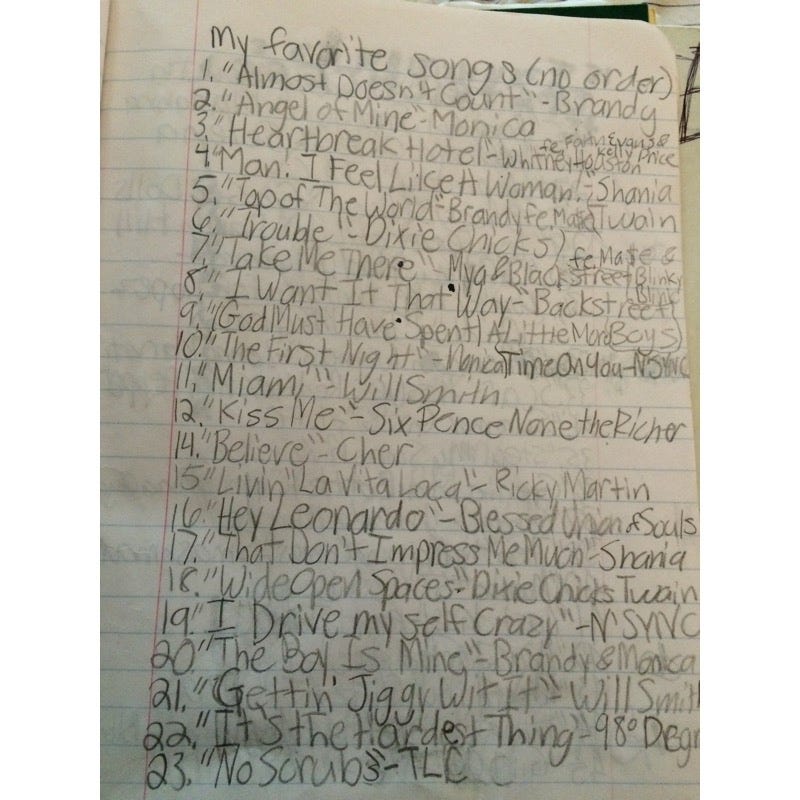 My favorite songs (no order)
1. "Almost Doesn't Count" - Brandy
2. "Angel of Mine" - Monica
3. "Heartbreak Hotel" - Whitney Houston fe. Faith Evans & Kelly Price
4. "Man! I Feel Like A Woman!" - Shania Twain
5. "Top of The World" - Brandy fe. Ma$e
6. "Trouble" - Dixie Chicks
7. "Take Me There" - Mya & Blackstreet fe. Ma$e & Blinky Blink
8. "I Want It That Way" - Backstreet Boys
9. "(God Must Have Spent) A Little More Time On You - N'SYNC
10. "The First Night" - Monica
11. "Miami" - Will Smith
12. "Kiss Me" - Six Pence None the Richer
14. "Believe" - Cher
15 "Livin' La Vita Loca" - Ricky Martin
16. "Hey Leonardo" - Blessed Union of Souls
17. "That Don't Impress Me Much - Shania Twain
18. "Wide Open Spaces" - Dixie Chicks
19. "I Drive my self Crazy" - N'SYNC
20 "The Boy Is Mine" - Brandy & Monica
21. "Gettin' Jiggy Wit It" - Will Smith
22. "It's the Hardest Thing" - 98° Degr
23. "No Scrubs" - TLC